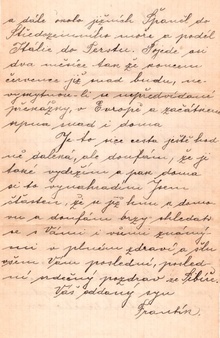 a dále okolo jižních Španěl do
Středozemního moře a podél
Italie do Terstu. Pojede asi
dva měsíce tak že koncem
července již snad budu, ne-
vyskytnou-li se nepředvídané
překážky, v Evropě a začátkem
srpna snad i doma
Je to sice cesta ještě hod
ně daleká, ale doufám, že ji
také vydržím a pak doma
si to vynahradím. Jsem
šťasten, že už jedu domů
a doufám brzy shledati
se s Vámi i všemi známý
mi v plném zdraví a
Vám poslední, posled
ní srdečný pozdrav ze Sibiře.
Váš oddaný syn
František.